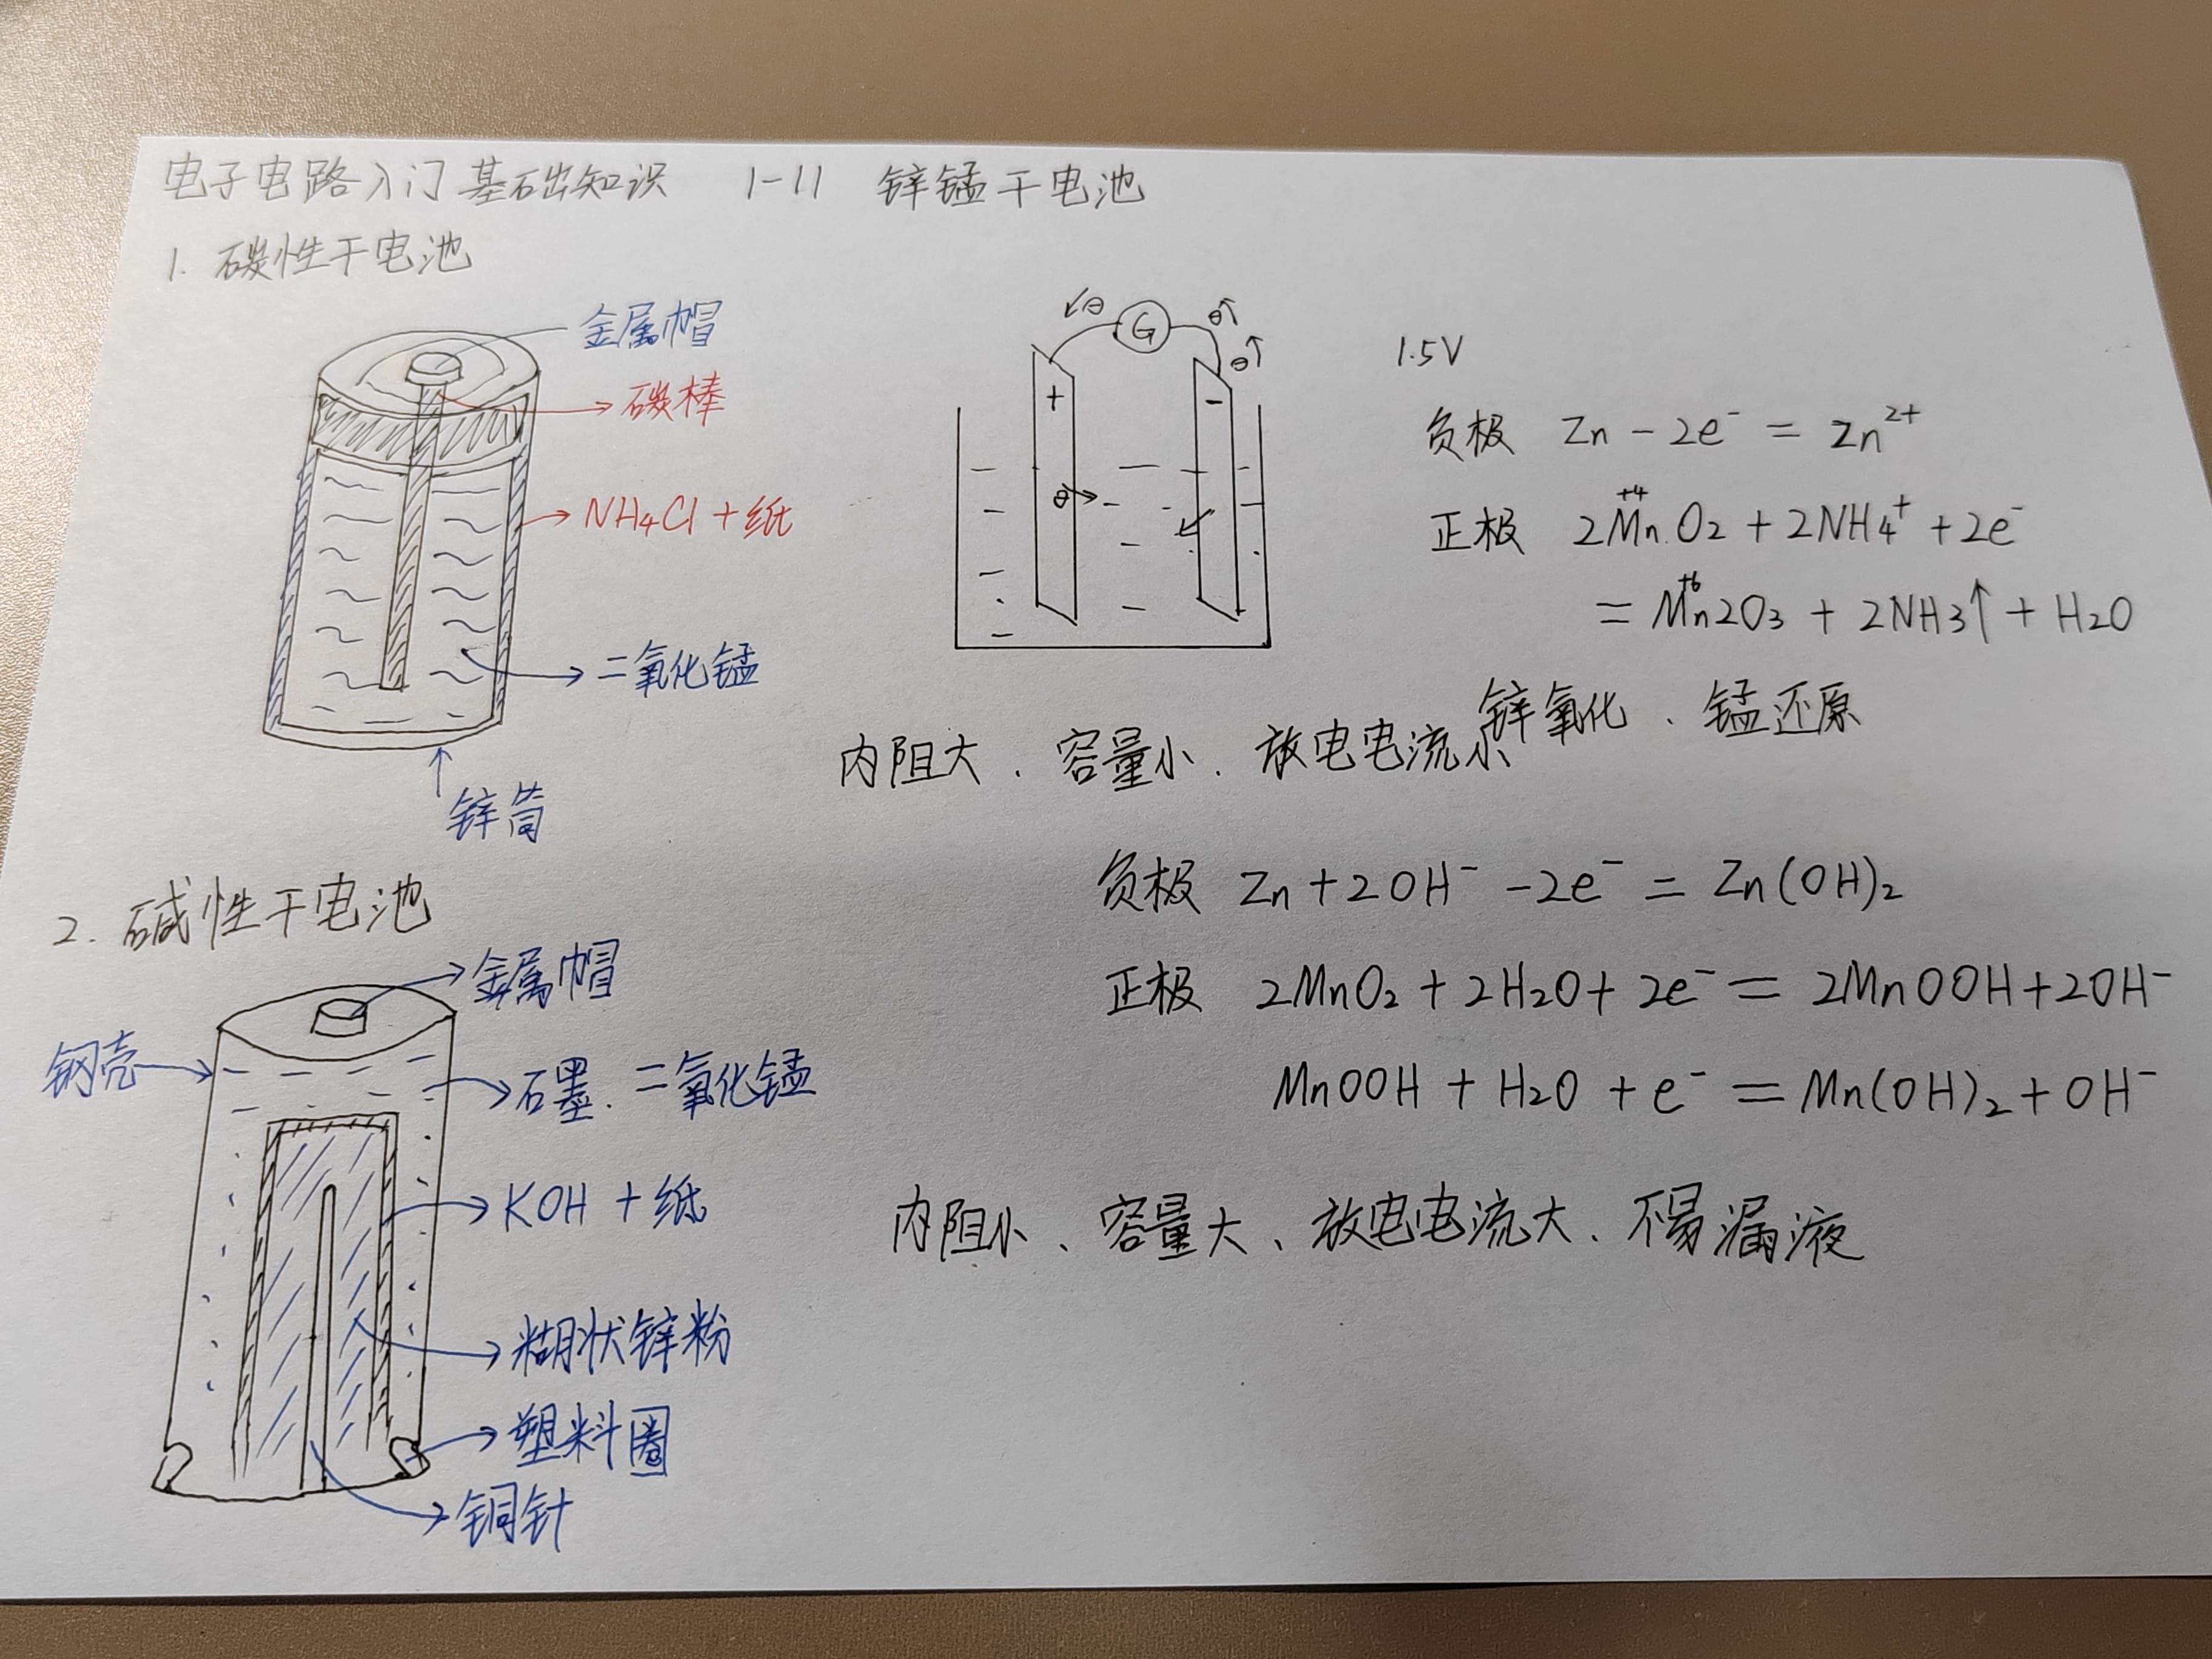 电子电路入门基础知识 1-11 锌锰干电池
1. 碳性干电池
金属帽
碳棒
NH4Cl + 纸
二氧化锰
锌筒
G
+
-
1.5V
负极 Zn - 2e⁻ = Zn²⁺
+4
正极 2MnO2 + 2NH4⁺ + 2e⁻
+6
= Mn2O3 + 2NH3↑ + H2O
锌氧化、锰还原
内阻大、容量小、放电电流小
2. 碱性干电池
金属帽
钢壳
石墨、二氧化锰
KOH + 纸
糊状锌粉
塑料圈
铜针
负极 Zn + 2OH⁻ - 2e⁻ = Zn(OH)₂
正极 2MnO2 + 2H2O + 2e⁻ = 2MnOOH + 2OH⁻
MnOOH + H2O + e⁻ = Mn(OH)₂ + OH⁻
内阻小、容量大、放电电流大、不易漏液